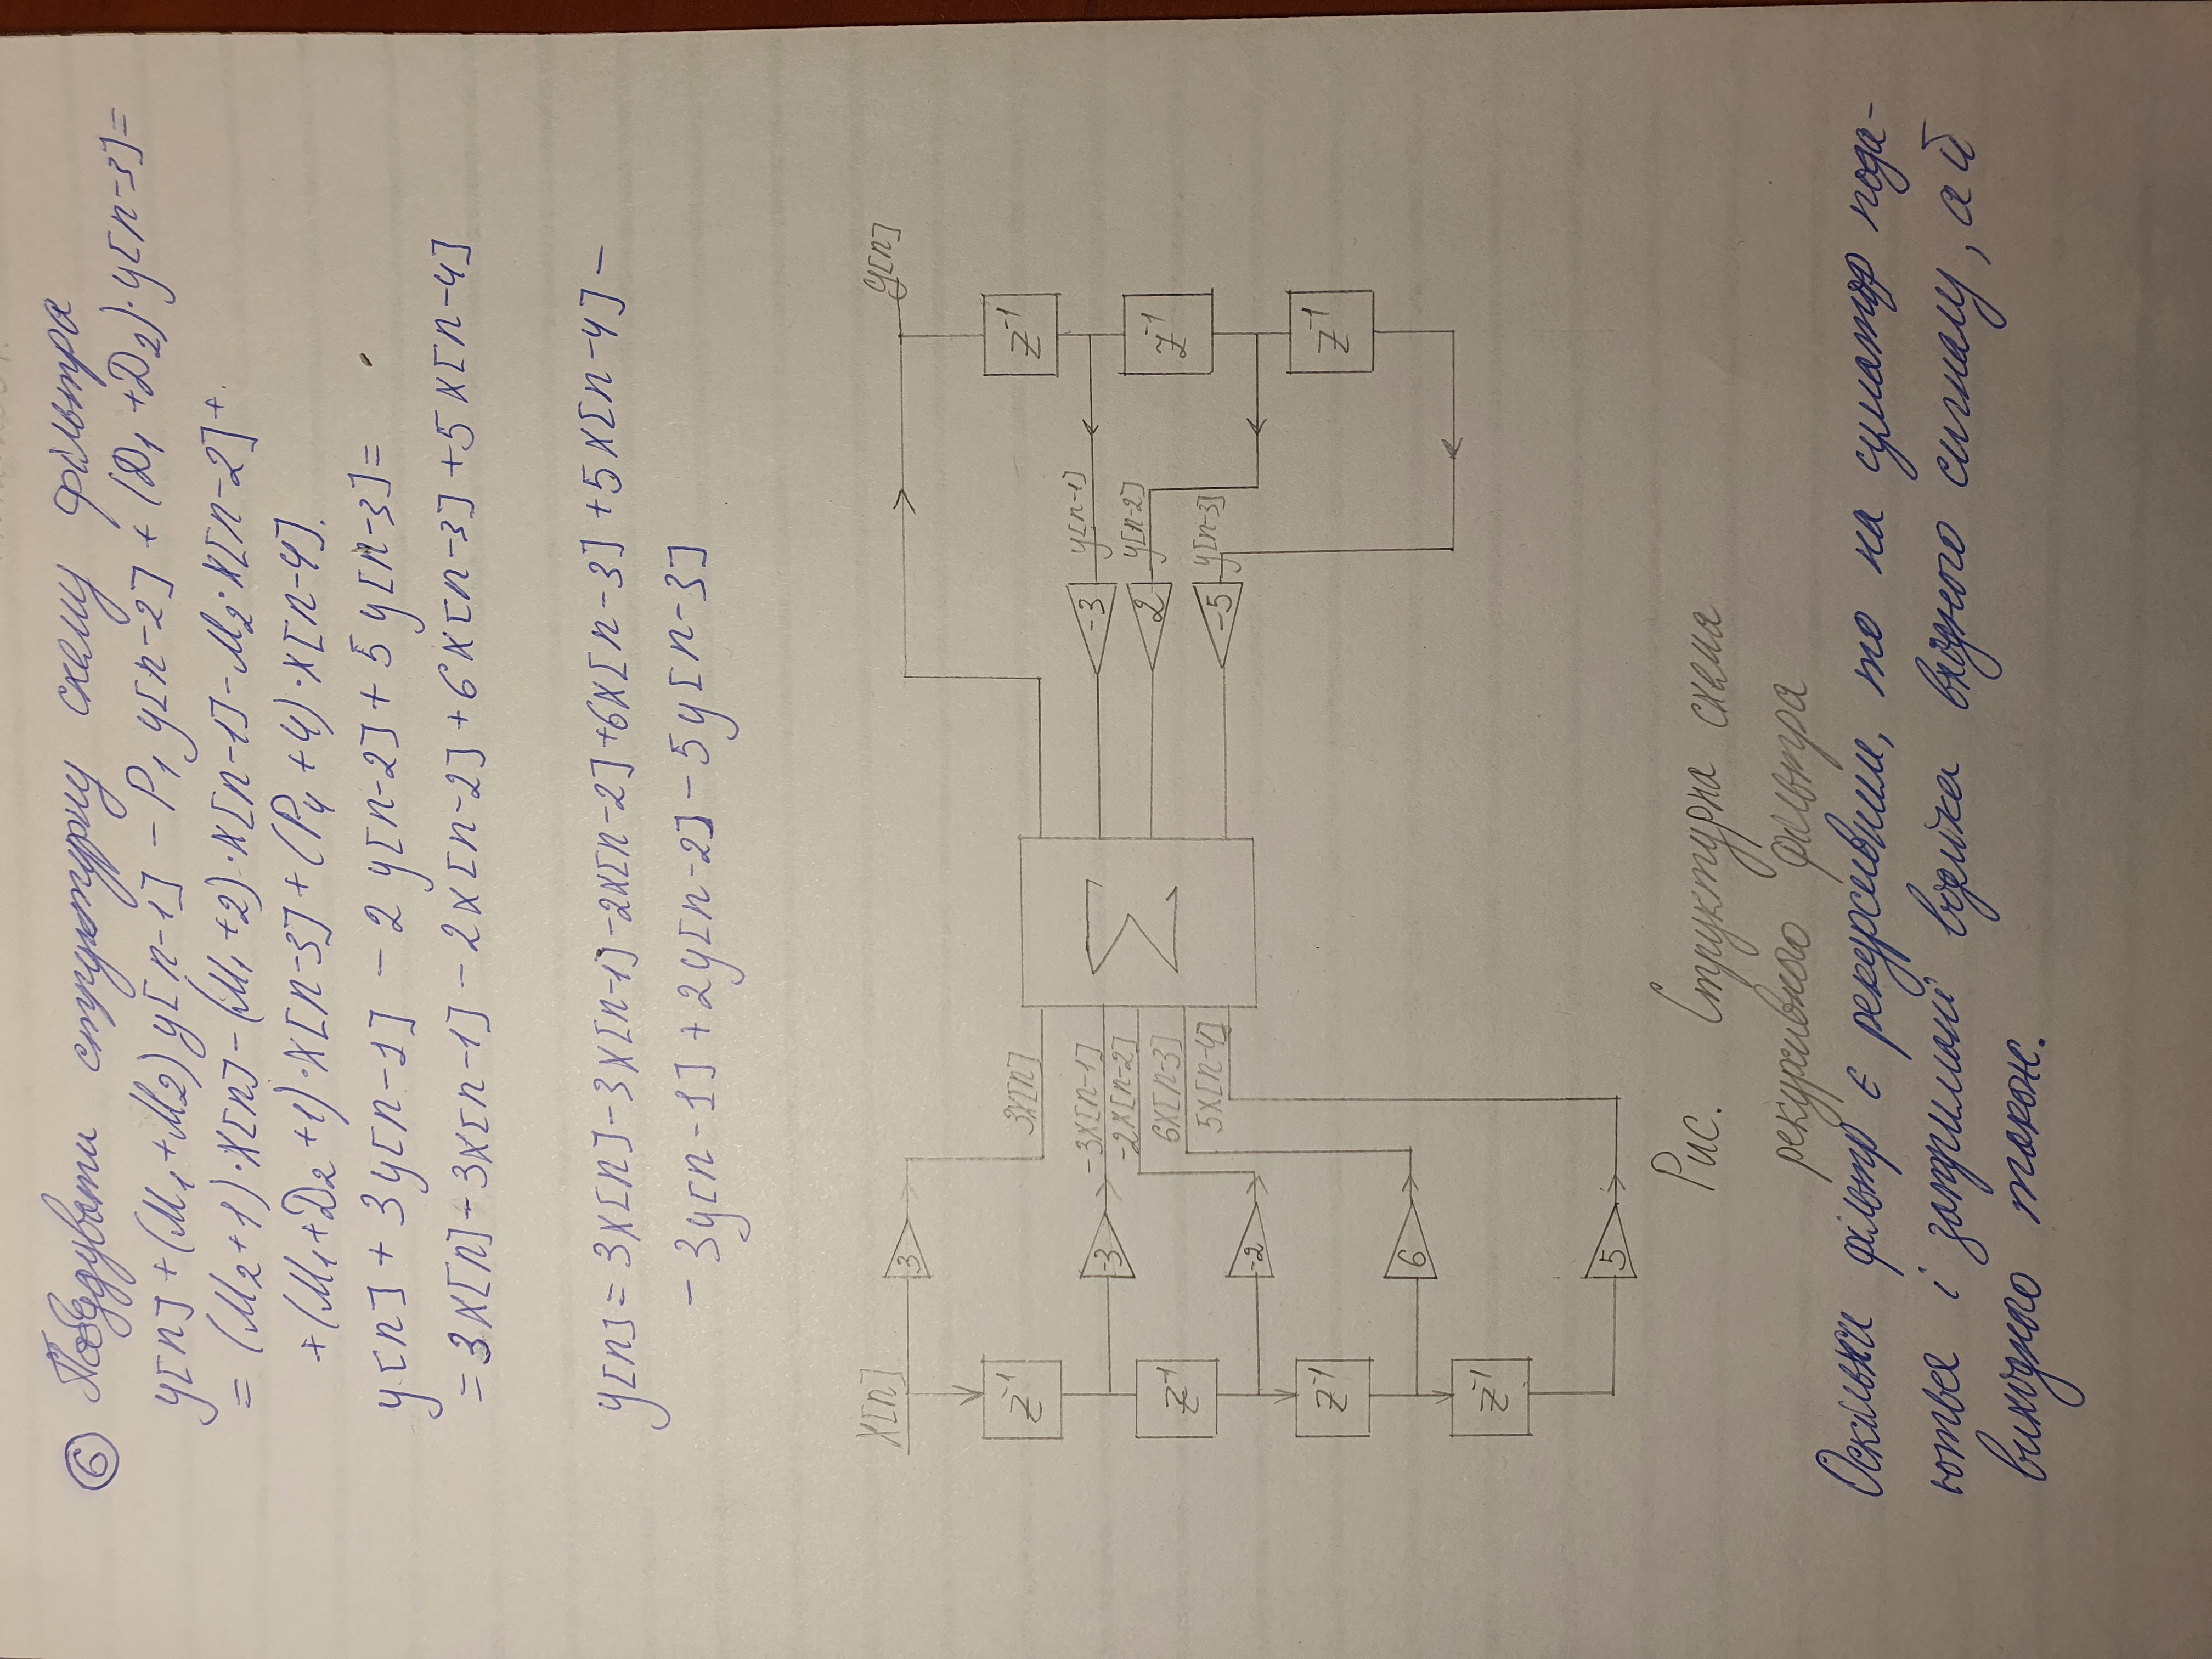 6 Побудувати структурну схему фільтра
y[n]+(М₁+М₂)y[n-1]-P₁y[n-2]+(D₁+D₂)·y[n-3]=
=(М₂+1)·x[n]-(М₁+2)·x[n-1]-М₂·x[n-2]+
+(М₁+D₂+1)·x[n-3]+(P₄+4)·x[n-4].
y[n]+3y[n-1]-2y[n-2]+5y[n-3]=
=3x[n]-3x[n-1]-2x[n-2]+6x[n-3]+5x[n-4]
y[n]=3x[n]-3x[n-1]-2x[n-2]+6x[n-3]+5x[n-4]-
-3y[n-1]+2y[n-2]-5y[n-3]
x[n]
y[n]
3
3x[n]
z⁻¹
z⁻¹
-3
-3x[n-1]
Σ
-3
y[n-1]
z⁻¹
-2x[n-2]
2
y[n-2]
z⁻¹
-2
6x[n-3]
-5
y[n-3]
z⁻¹
5x[n-4]
z⁻¹
6
z⁻¹
5
Рис. Структурна схема
рекурсивного фільтра
Оскільки фільтр є рекурсивним, то на суматор пода-
ються і затримані відліки вхідного сигналу, а й
вихідного також.